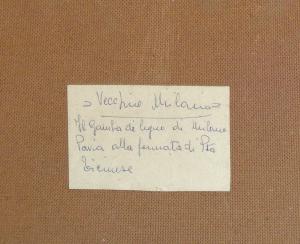 > Vecchia Milano >
Il Gamba de legno di Milano
Pavia alla fermata di Pta
Ticinese